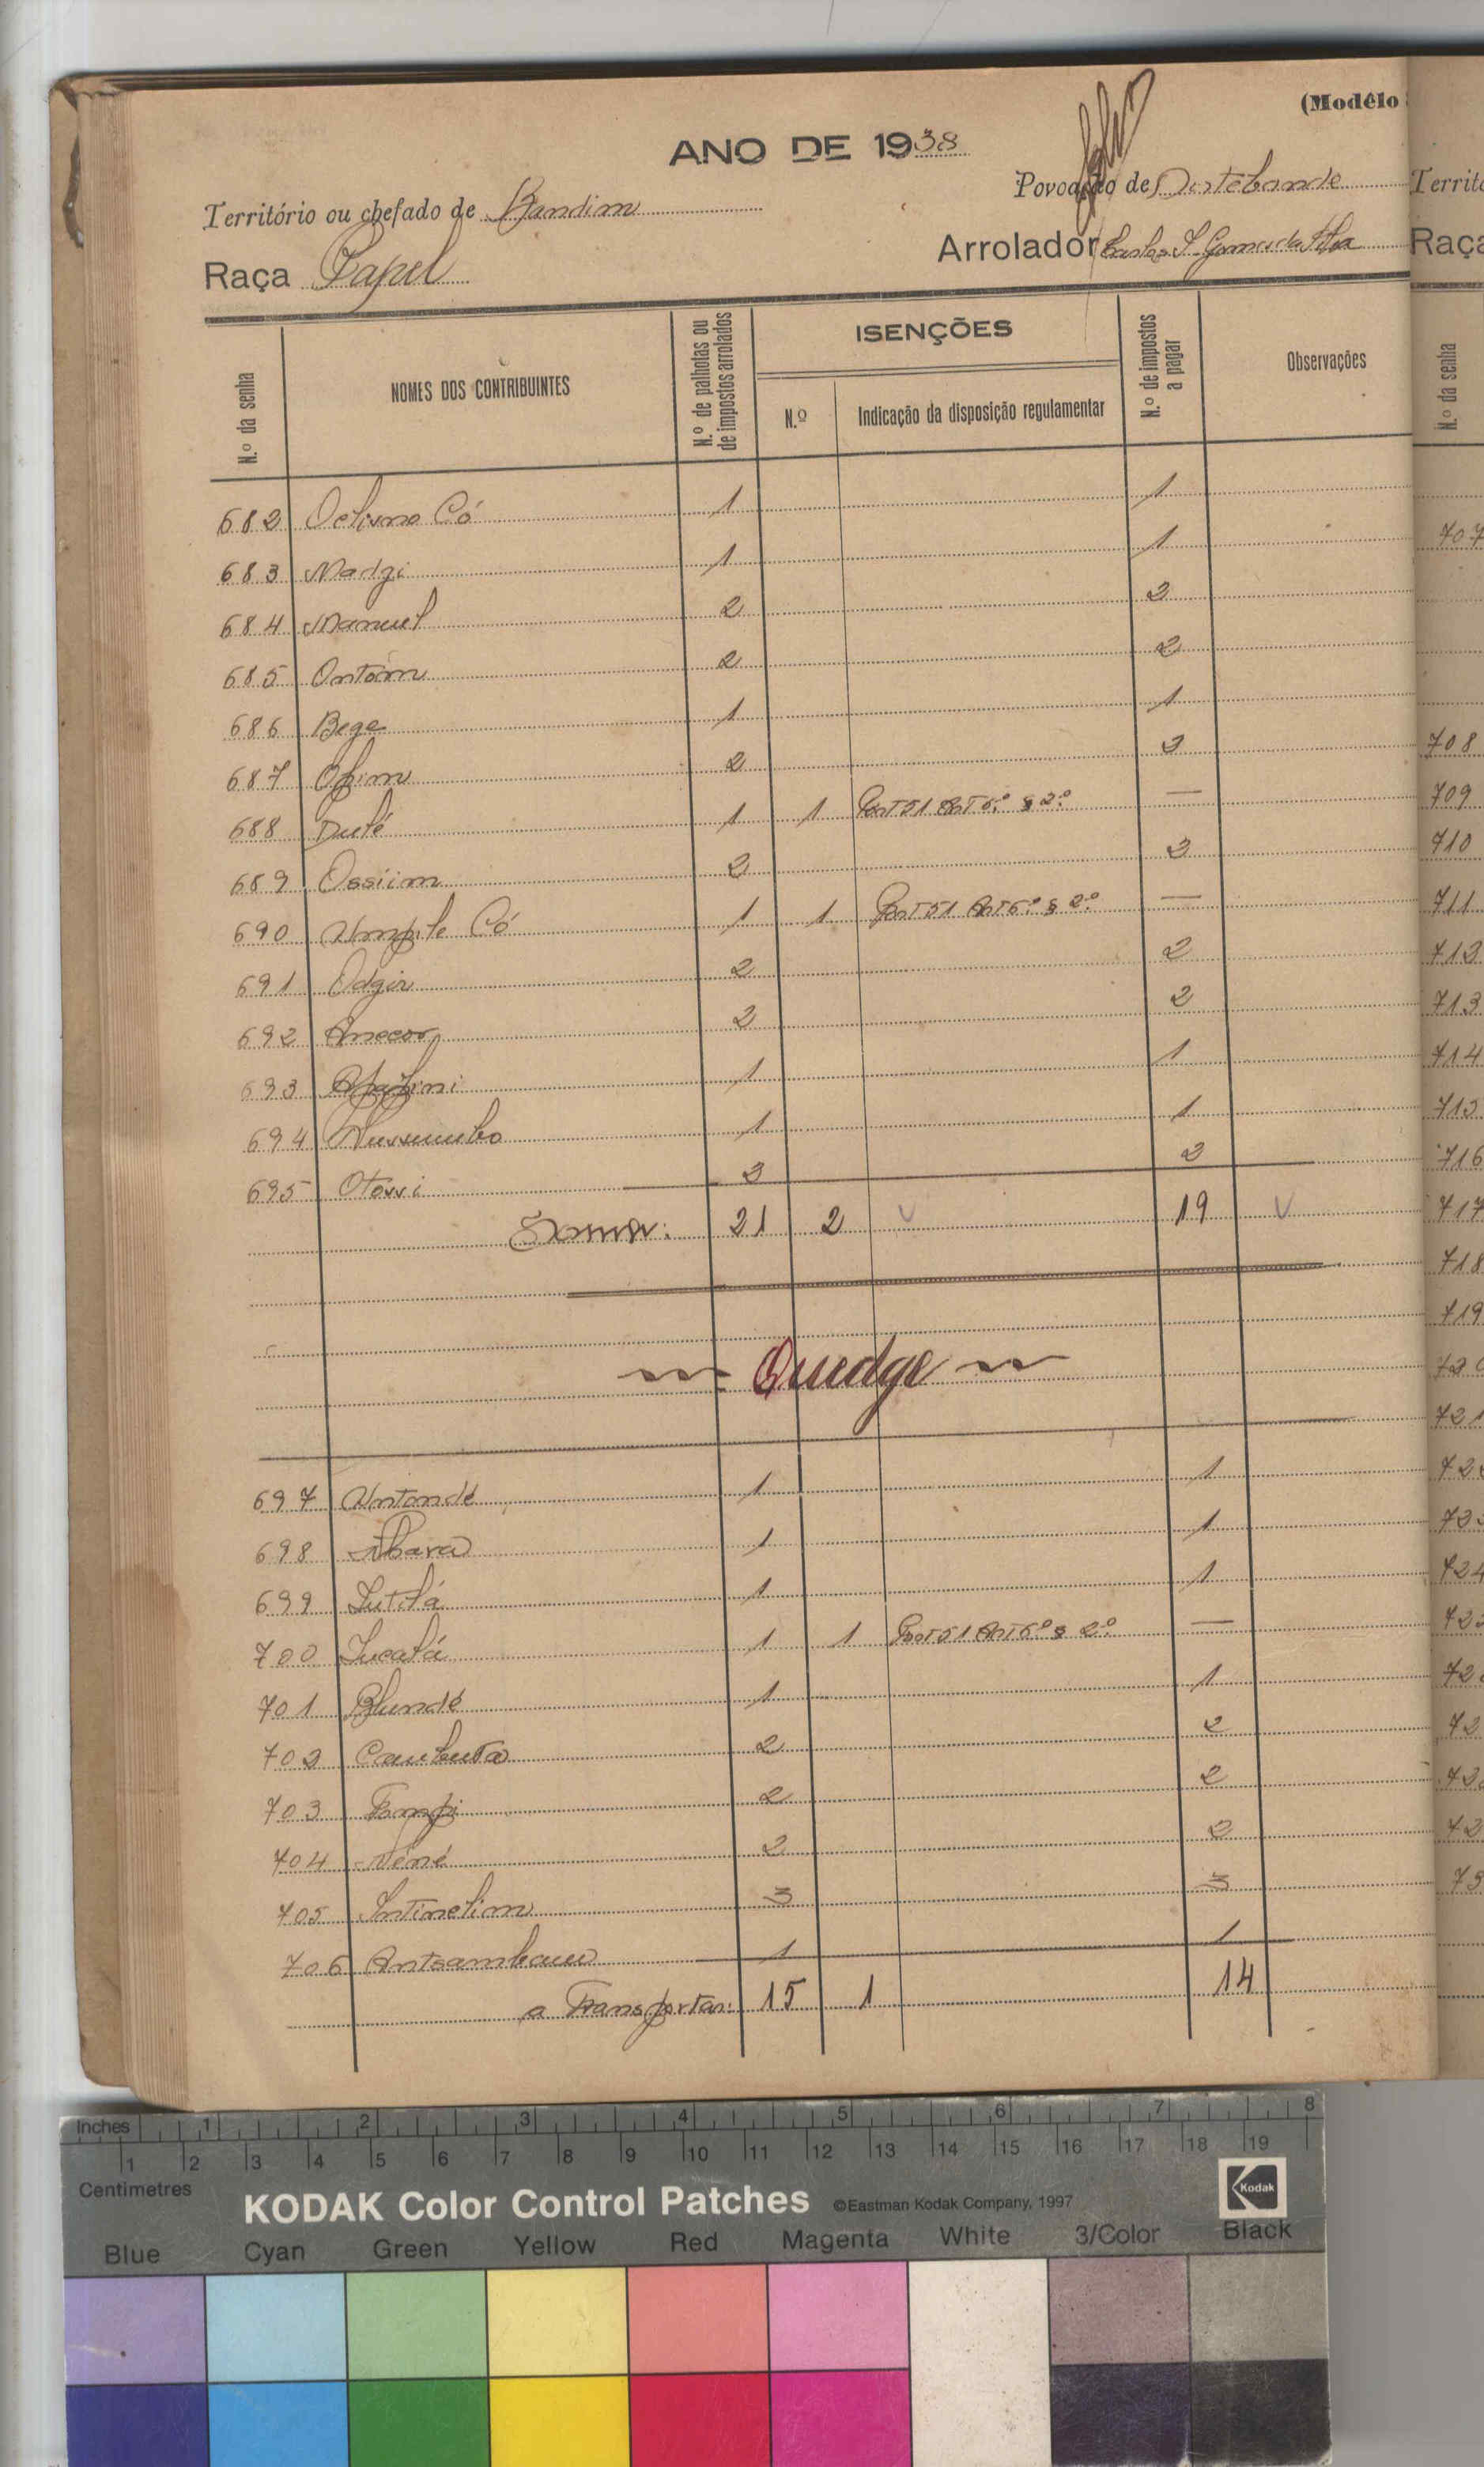 (Modêlo
ANO DE 1938
Território ou chefado de Bandim
Povoação de
Raça Papel
Arrolador Carlos S. Gomes da Silva
N.º da senha
NOMES DOS CONTRIBUINTES
N.º de palhotas ou de impostos arrolados
ISENÇÕES
N.º
Indicação da disposição regulamentar
N.º de impostos a pagar
Observações
682 Có 1 1
683 Nadgi 1 1
684 Manuel 2 2
685 Ontóm 2 2
686 Bege 1 1
687 2 2
688 Dulé 1 1 Port 51 Art 6.º § 2.º —
689 Ossiim 2 2
690 Có 1 1 Port 51 Art 6.º § 2.º —
691 Odgir 2 2
692 Anecor 2 2
693 1 1
694 1 1
695 Otossi 2 2
Soma: 21 2 19
Quedge
697 Untondé 1 1
698 1 1
699 1 1
700 1 1 Port 51 Art 6.º § 2.º —
701 Blundé 1 1
702 2 2
703 2 2
704 Néné 2 2
705 3 3
706 1 1
a Transportar: 15 1 14
Territ
Raça
N.º da senha
707
708
709
710
711
712
713
714
715
716
717
718
719
721
724
Inches 1 2 3 4 5 6 7 8
1 2 3 4 5 6 7 8 9 10 11 12 13 14 15 16 17 18 19
Centimetres
KODAK Color Control Patches ©Eastman Kodak Company, 1997 Kodak
Blue Cyan Green Yellow Red Magenta White 3/Color Black